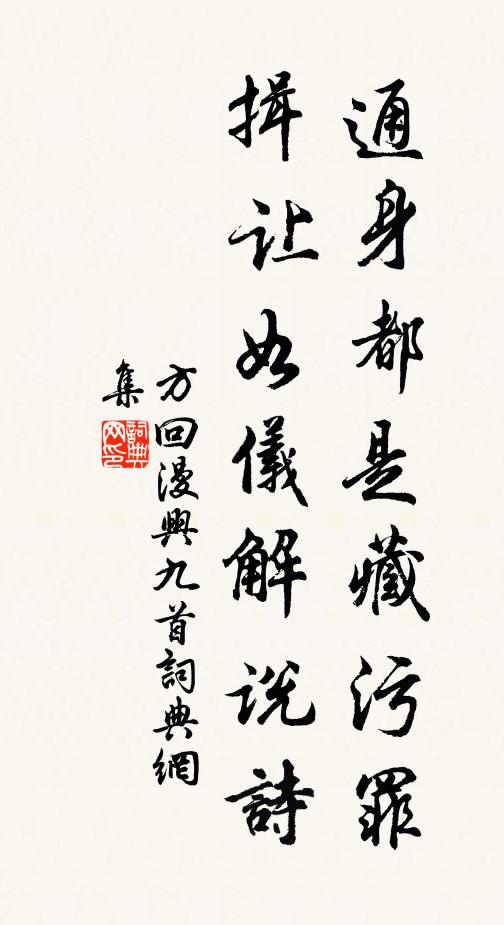 通身都是藏污罪
揖让如儀解说詩
方回漫興九首詞典網
集
詞典网印